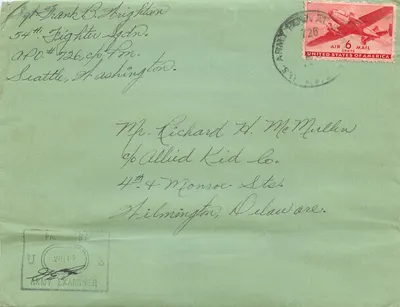 Sgt. Frank C. Brighton
54th Fighter Sqdn.
A.P.O. #726, c/o P.M.
Seattle, Washington.
U.S. ARMY
AIR 6 MAIL
CENTS
UNITED STATES OF AMERICA
Mr. Richard H. McMullen
c/o Allied Kid Co.
4th & Monroe Sts.
Wilmington, Delaware.
PASSED BY
U S
ARMY EXAMINER